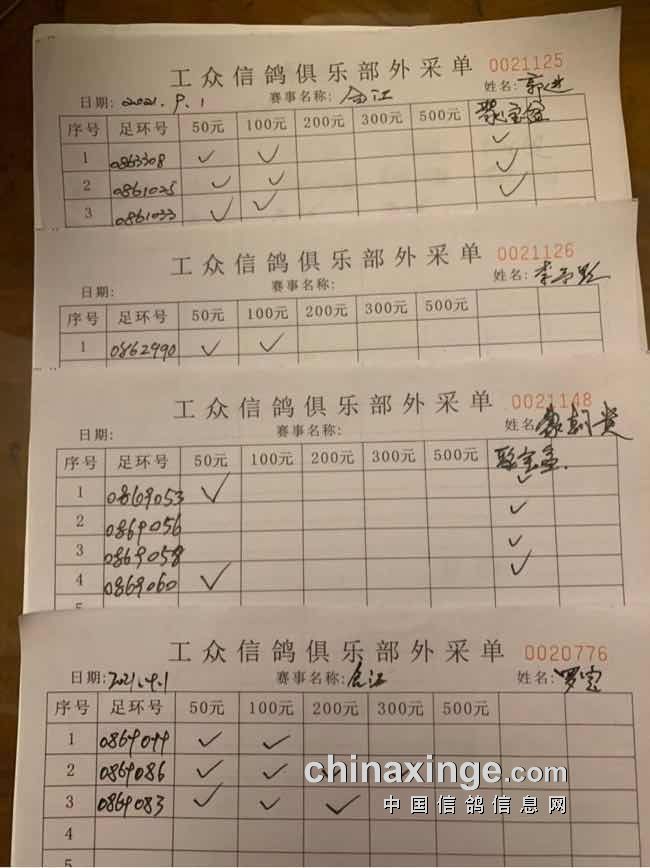 工众信鸽俱乐部外采单 0021125
日期: 2021.9.1 赛事名称: 合江 姓名:
序号 足环号 50元 100元 200元 300元 500元 聚宝盆
1 0863308 ✓ ✓ ✓
2 0861025 ✓ ✓ ✓
3 0861033 ✓ ✓ ✓
工众信鸽俱乐部外采单 0021126
日期: 赛事名称: 姓名: 李
序号 足环号 50元 100元 200元 300元 500元
1 0862990 ✓ ✓
工众信鸽俱乐部外采单 0021148
日期: 赛事名称: 姓名:
序号 足环号 50元 100元 200元 300元 500元 聚宝盆
1 0869053 ✓ ✓
2 0869056 ✓
3 0869058 ✓
4 0869060 ✓ ✓
5
工众信鸽俱乐部外采单 0020776
日期: 2021.9.1 赛事名称: 合江 姓名: 罗定
序号 足环号 50元 100元 200元 300元 500元
1 ✓ ✓
2 0869086 ✓ ✓
3 0869083 ✓ ✓ ✓
4
5
chinaxinge.com
中国信鸽信息网